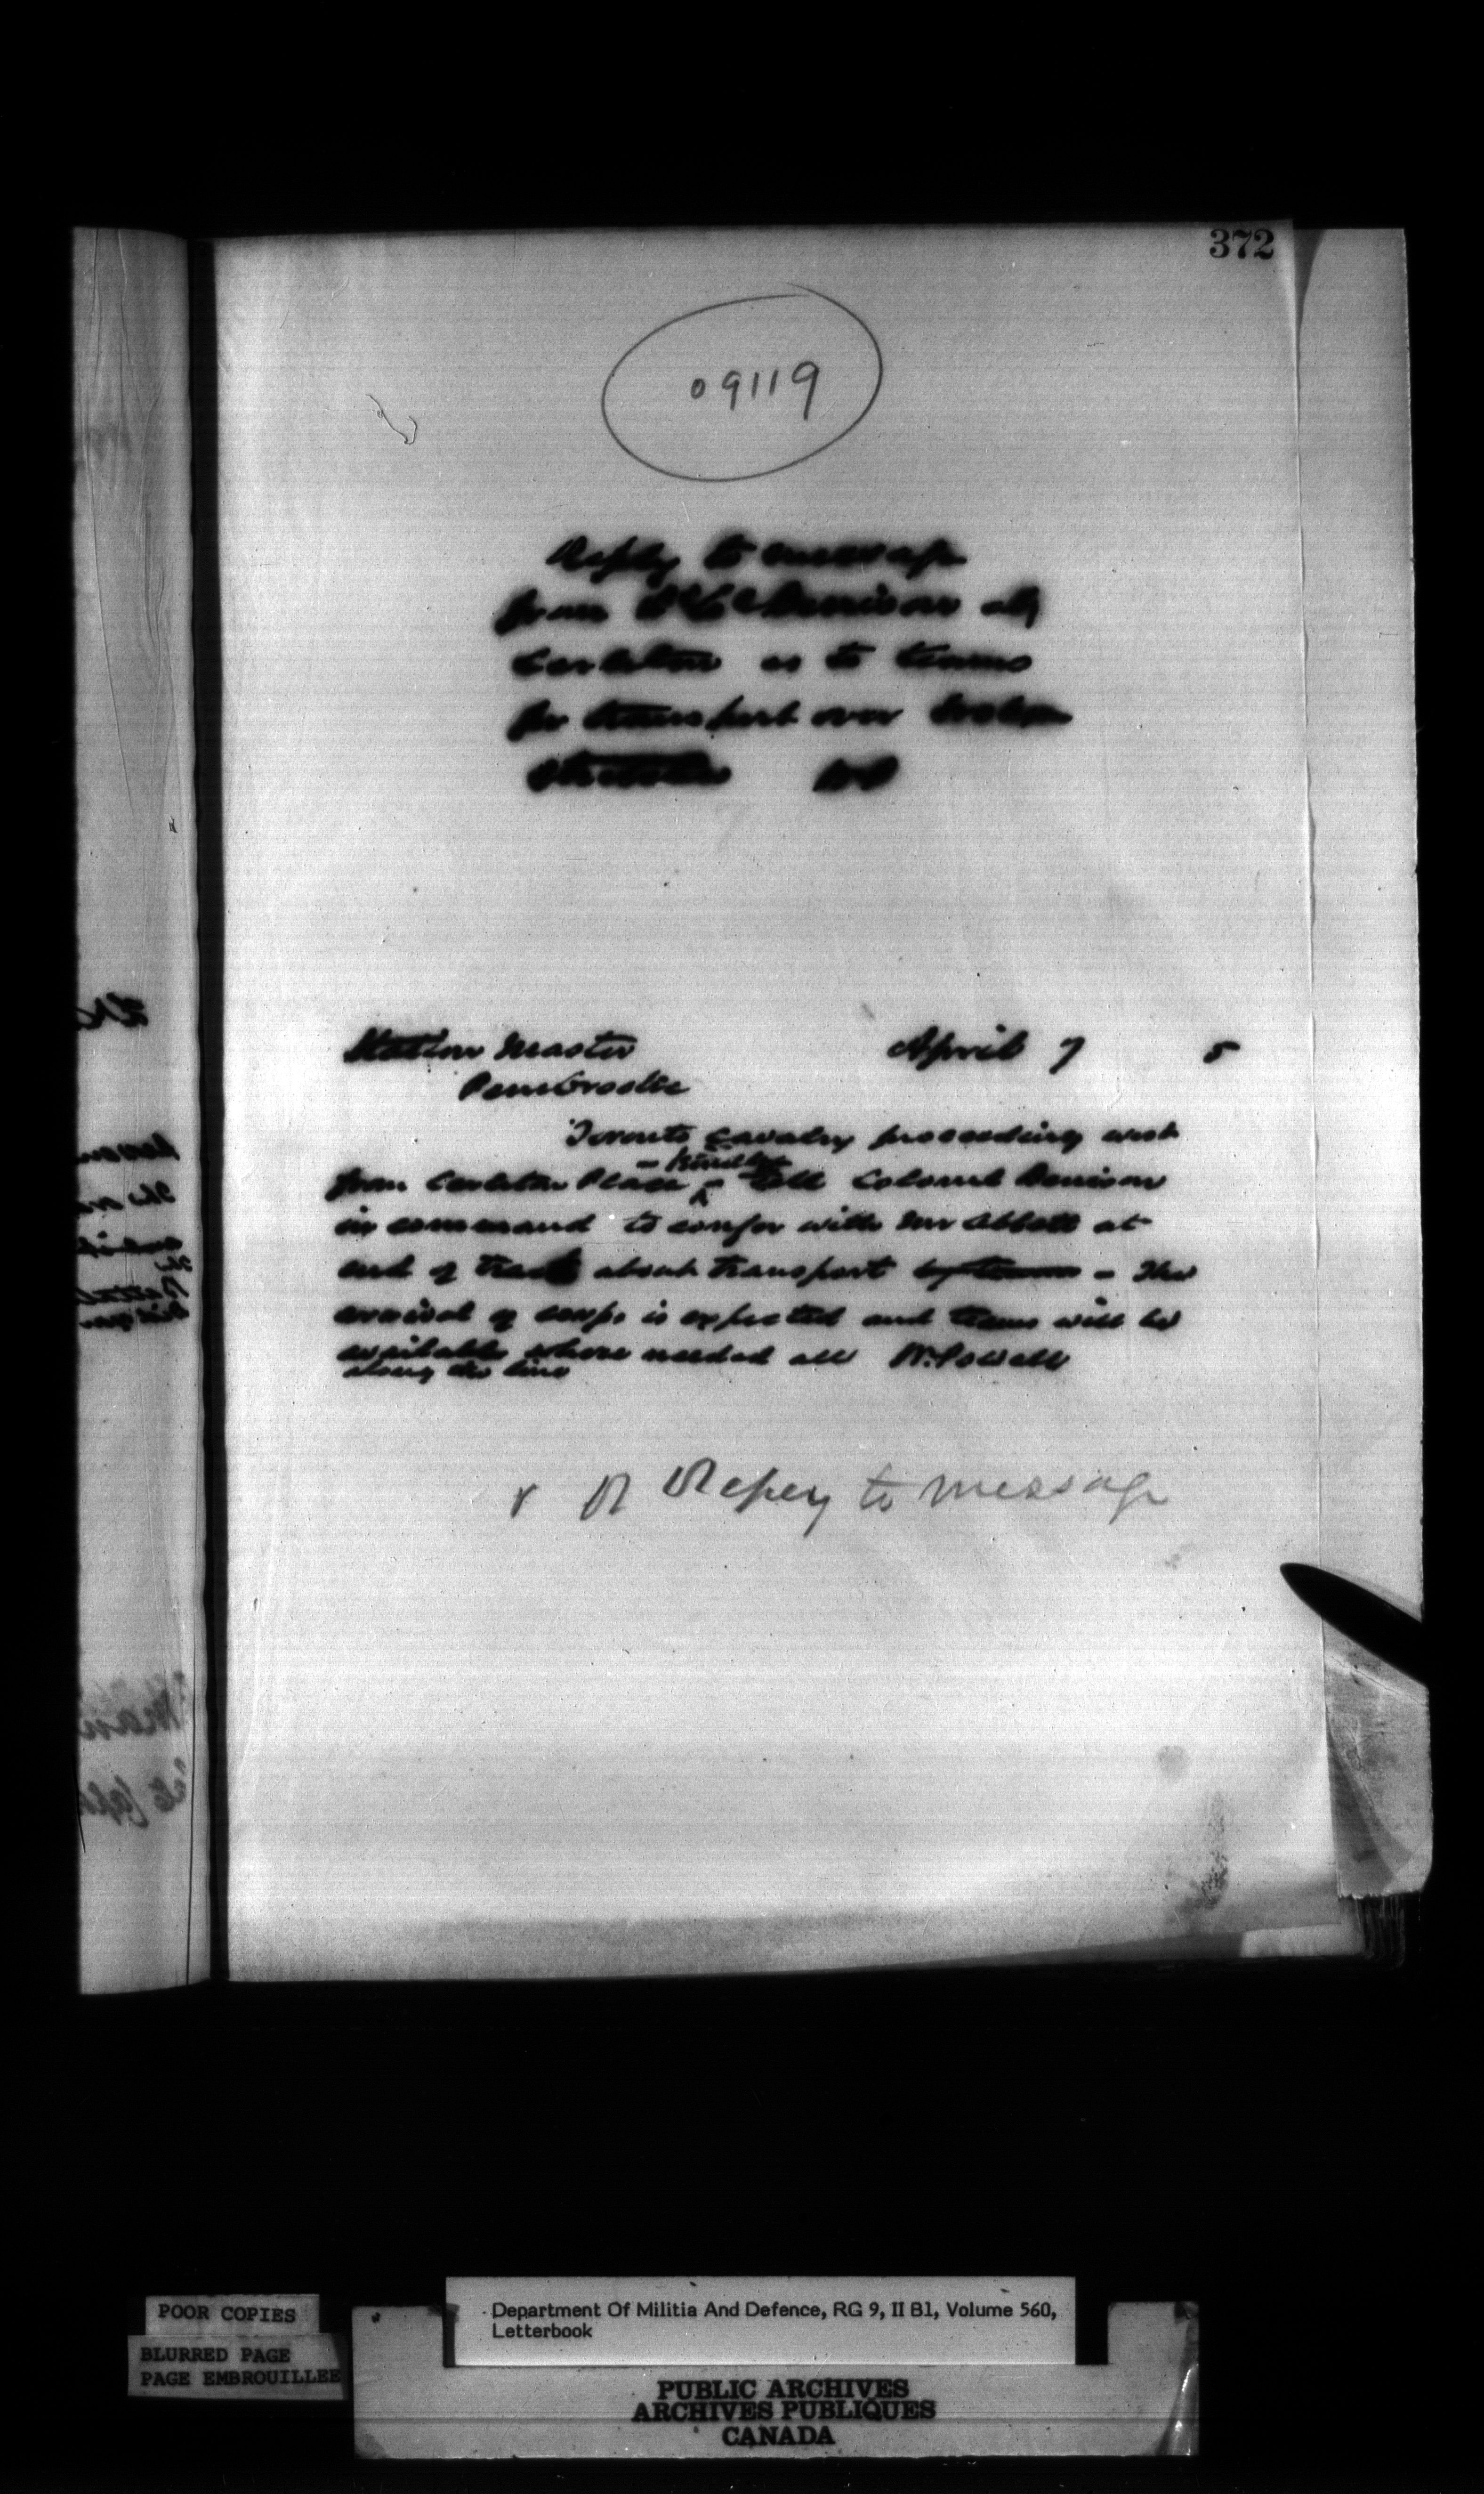 372
09119
Reply to message
from Lt Col Denison
Carleton as to teams
for transport over
stretches WP
Station Master April 7 5
Pembroke
Toronto cavalry proceeding west
- Kindly
from Carleton Place - tell Colonel Denison
in command to confer with Mr Abbott at
end of track about transport by teams - The
arrival of corps is expected and teams will be
available where needed all W. Powell
along the line
R Reply to message
POOR COPIES
BLURRED PAGE
PAGE EMBROUILLEE
Department Of Militia And Defence, RG 9, II B1, Volume 560,
Letterbook
PUBLIC ARCHIVES
ARCHIVES PUBLIQUES
CANADA